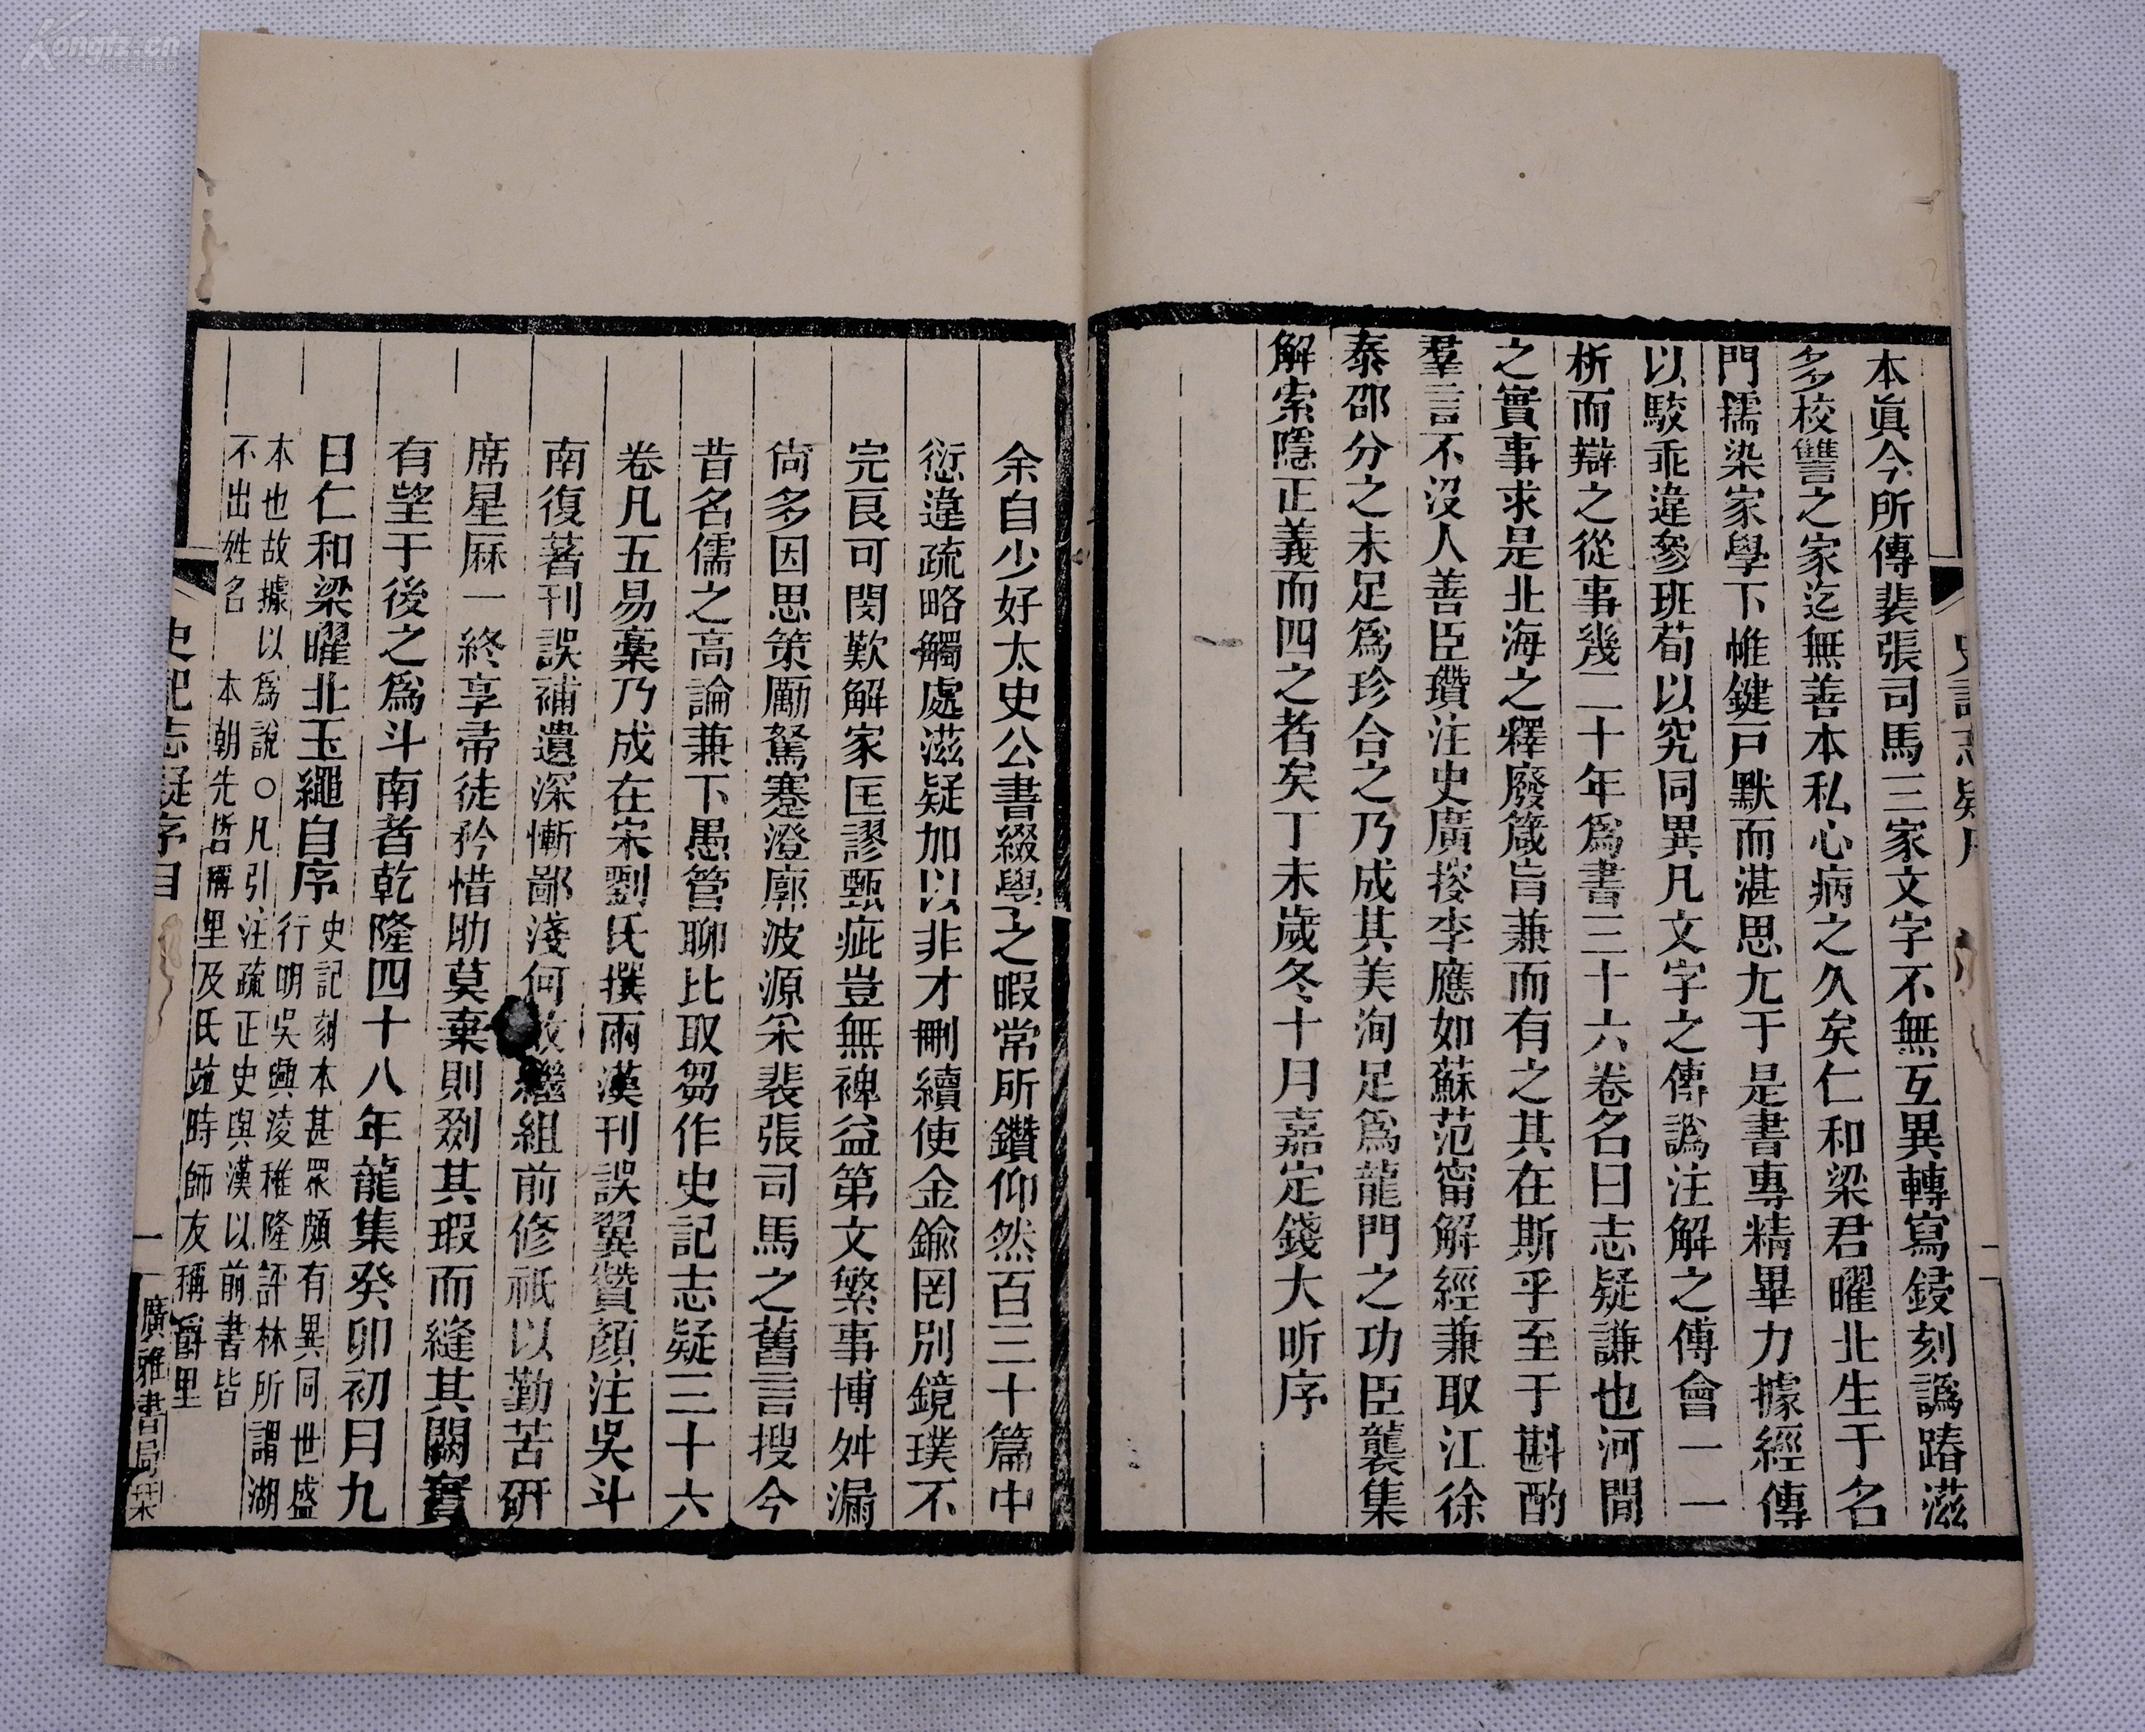 本眞今所傳裴張司馬三家文字不無互異轉寫鋟刻譌踳滋
多校讐之家迄無善本私心病之久矣仁和梁君曜北生于名
門擩染家學下帷鍵戸默而湛思尢于是書專精畢力據經傳
以駮乖違參班荀以究同異凡文字之傳譌注解之傅會一一
析而辯之從事幾二十年爲書三十六卷名曰志疑謙也河間
之實事求是北海之釋廢箴旨兼而有之其在斯乎至于斟酌
羣言不沒人善臣瓚注史廣搜李應如蘇范甯解經兼取江徐
泰邵分之未足爲珍合之乃成其美洵足爲龍門之功臣襲集
解索隱正義而四之者矣丁未歲冬十月嘉定錢大昕序
余自少好太史公書綴學之暇常所鑽仰然百三十篇中
愆違疏略觸處滋疑加以非才刪續使金鍮罔別鏡璞不
完良可閔歎解家匡謬甄疵豈無裨益第文繁事博舛漏
尙多因思策勵駑蹇澄廓波源采裴張司馬之舊言搜今
昔名儒之高論兼下愚管聊比取芻作史記志疑三十六
卷凡五易藁乃成在宋劉氏撰兩漢刊誤翼贊顏注吳斗
南復著刊誤補遺深慚鄙淺何敢繼組前修祇以勤苦研
席星厤一終享帚徒矜惜助莫棄則剟其瑕而縫其闕實
有望于後之爲斗南者乾隆四十八年龍集癸卯初月九
日仁和梁曜北玉繩自序
史記刻本甚眾頗有異同世盛
行明吳興淩稚隆評林所謂湖
本也故據以爲說○凡引注疏正史與漢以前書皆
不出姓名 本朝先哲稱里及氏竝時師友稱爵里
史記志疑序目
一
廣雅書局栞